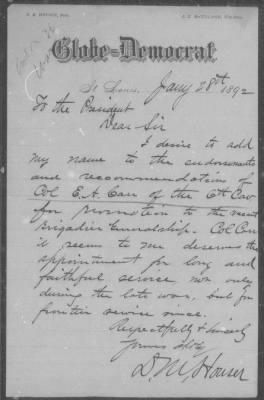 D. M. HOUSER, Pres.
Globe-Democrat
St. Louis, Jany 28th 1892
To the President
Dear Sir
I desire to add
my name to the endorsements
and recommendations of
Col E. A. Carr of the 6th Cav
for promotion to the vacant
Brigadier Generalship. Col Carr
it seems to me deserves the
appointment for long and
faithful service not only
during the late war, but for
frontier service since.
Respectfully & Sincerely
Yours
D. M. Houser